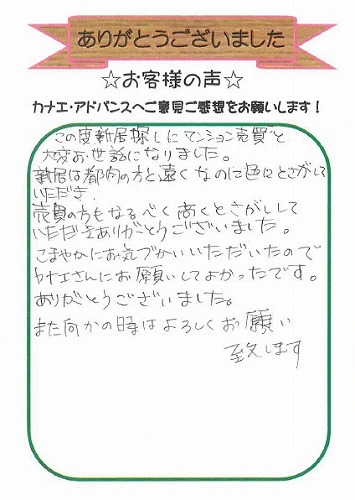 ありがとうございました
☆お客様の声☆
カナエ・アドバンスへご意見ご感想をお願いします！
この度新居探しにマンション売買と
大変お世話になりました。
新居は都内の方と遠くなのに色々とさがして
いただき、
売買の方もなるべく高くとさがしして
いただきありがとうございました。
こまやかにお気づかいいただいたので
カナエさんにお願いしてよかったです。
ありがとうございました。
また何かの時はよろしくお願い
致します